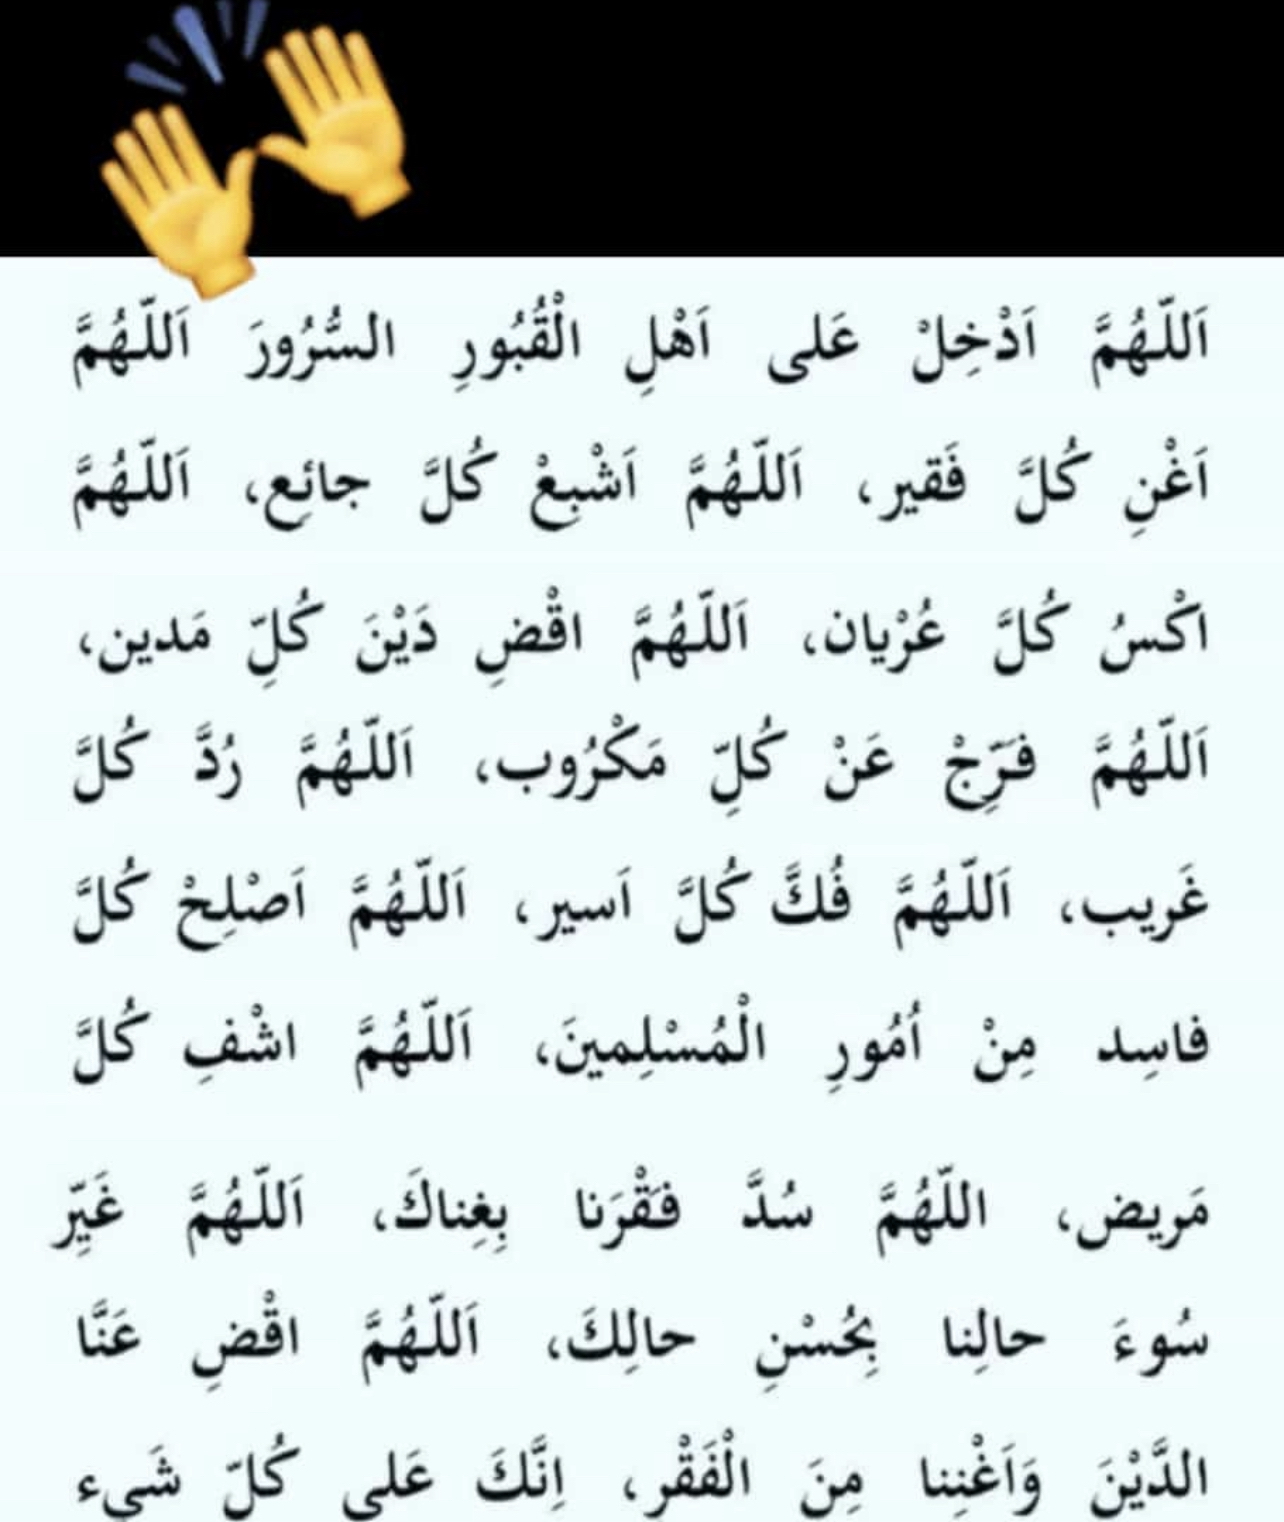 اَللّهُمَّ اَدْخِلْ عَلى اَهْلِ الْقُبُورِ السُّرُورَ اَللّهُمَّ
اَغْنِ كُلَّ فَقير، اَللّهُمَّ اَشْبِعْ كُلَّ جائِع، اَللّهُمَّ
اكْسُ كُلَّ عُرْيان، اَللّهُمَّ اقْضِ دَيْنَ كُلِّ مَدين،
اَللّهُمَّ فَرِّجْ عَنْ كُلِّ مَكْرُوب، اَللّهُمَّ رُدَّ كُلَّ
غَريب، اَللّهُمَّ فُكَّ كُلَّ اَسير، اَللّهُمَّ اَصْلِحْ كُلَّ
فاسِد مِنْ اُمُورِ الْمُسْلِمينَ، اَللّهُمَّ اشْفِ كُلَّ
مَريض، اللّهُمَّ سُدَّ فَقْرَنا بِغِناكَ، اَللّهُمَّ غَيِّر
سُوءَ حالِنا بِحُسْنِ حالِكَ، اَللّهُمَّ اقْضِ عَنَّا
الدَّيْنَ وَاَغْنِنا مِنَ الْفَقْرِ، اِنَّكَ عَلى كُلِّ شَيء